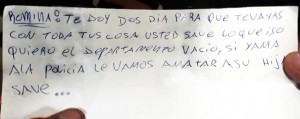 ROMINA: TE DOY DOS DIA PARA QUE TEVAYAS
CON TODA TUS COSA USTED SAVE LO QUEISO
QUIERO EL DEPARTAMENTO VACIO, SI YAMA
ALA POLICIA LE VAMOS AMATAR ASU HIJO
SAVE...